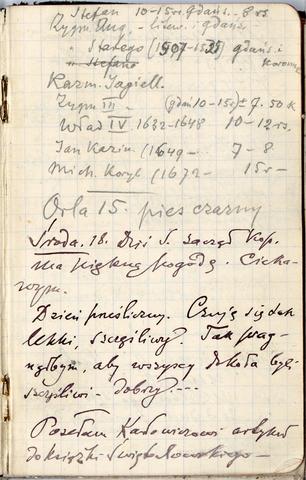 Stefan 10-15 rs gdańs. - 8 rs
Zygm. Aug. - litew. i gdańs
" Starego (1507-1535) gdańs i
koronne
Kazm. Jagiell.
Zygm III - (gdań 10-15 rs) ± 7.50 K
Wład IV 1632-1648 10-12 rs.
Jan Kazim. (1649- 7-8
Mich. Koryb (1672- 15 rs -
Orla 15. pies czarny
Środa. 18. Dziś S. zaczął Kop.
ma piękną pogodę. Cieka-
wym.
Dzień prześliczny. Czuję się tak
lekki, szczęśliwy. Tak prag-
nąłbym, aby wszyscy dokoła byli
szczęśliwi - dobrzy...
Posłałem Kazimierzowi artykuł
do książki Świętosławskiego -